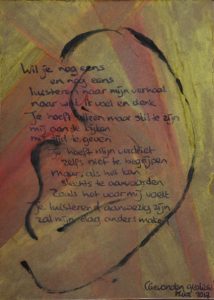 Wil je nog eens
en nog eens
luisteren naar mijn verhaal
naar wat ik voel en denk
Je hoeft alleen maar stil te zijn
mij aan te kijken
mij tijd te geven
Je hoeft mijn verdriet
zelfs niet te begrijpen
maar als het kan
slechts te aanvaarden
zoals het voor mij voelt
je luisterend aanwezig zijn
zal mijn dag anders maken